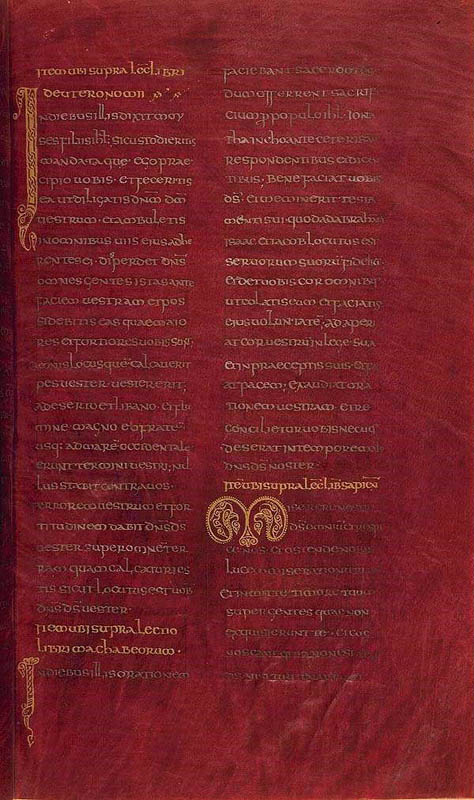 Item ubi supra lec libri
deuteronomii
Indiebus illis dixit moy
ses filiis isrl; si custodieritis
mandata quae ego prae
cipio uobis · et feceritis
ea ut diligatis dnm dm
uestrum · et ambuletis
in omnibus uiis eius adhe
rentes ei · disperdet dns
omnes gentes istas ante
faciem uestram et pos
sidebitis eas quae maio
res et fortiores uobis sunt;
omnis locus que calcauerit
pes uester uester erit;
a deserto et libano · et flu
mine magno eufrate
usq; ad mare occidentale
erunt termini uestri; nul
lus stabit contra uos ·
terrorem uestrum et for
titudinem dabit dns ds
uester super omnem ter
ram quam calcaturi es
tis sicut locutus est uob
dns ds uester ·
Item ubi supra lectio
libri machabeorum ·
Indiebus illis orationem
faciebant sacerdotes
dum offerrent sacrifi
cium p populo isrl · Iona
tha inchoante ceteris au
respondentibus et dicen
tibus; Benefaciat uobis
ds · et meminerit testa
menti sui · quod ad abraham
isaac et iacob locutus est
seruorum suorum fidelium
et det uobis cor omnibus
ut colatis eum et faciatis
eius uoluntate; adaperiat
cor uestrum in lege sua
et in praeceptis suis · et faci
at pacem; exaudiat ora
tionem uestram · et re
concilietur uobis nec uos
deserat in tempore malo
dns ds noster
Item ubi supra lec lib sapien
Miserere nri
ds omnium
et ostende nobis
lucem miserationum
et inmitte timorem tuum
super gentes quae non
exquisierunt te · et cog
noscant quia non est alius
ds nisi tu